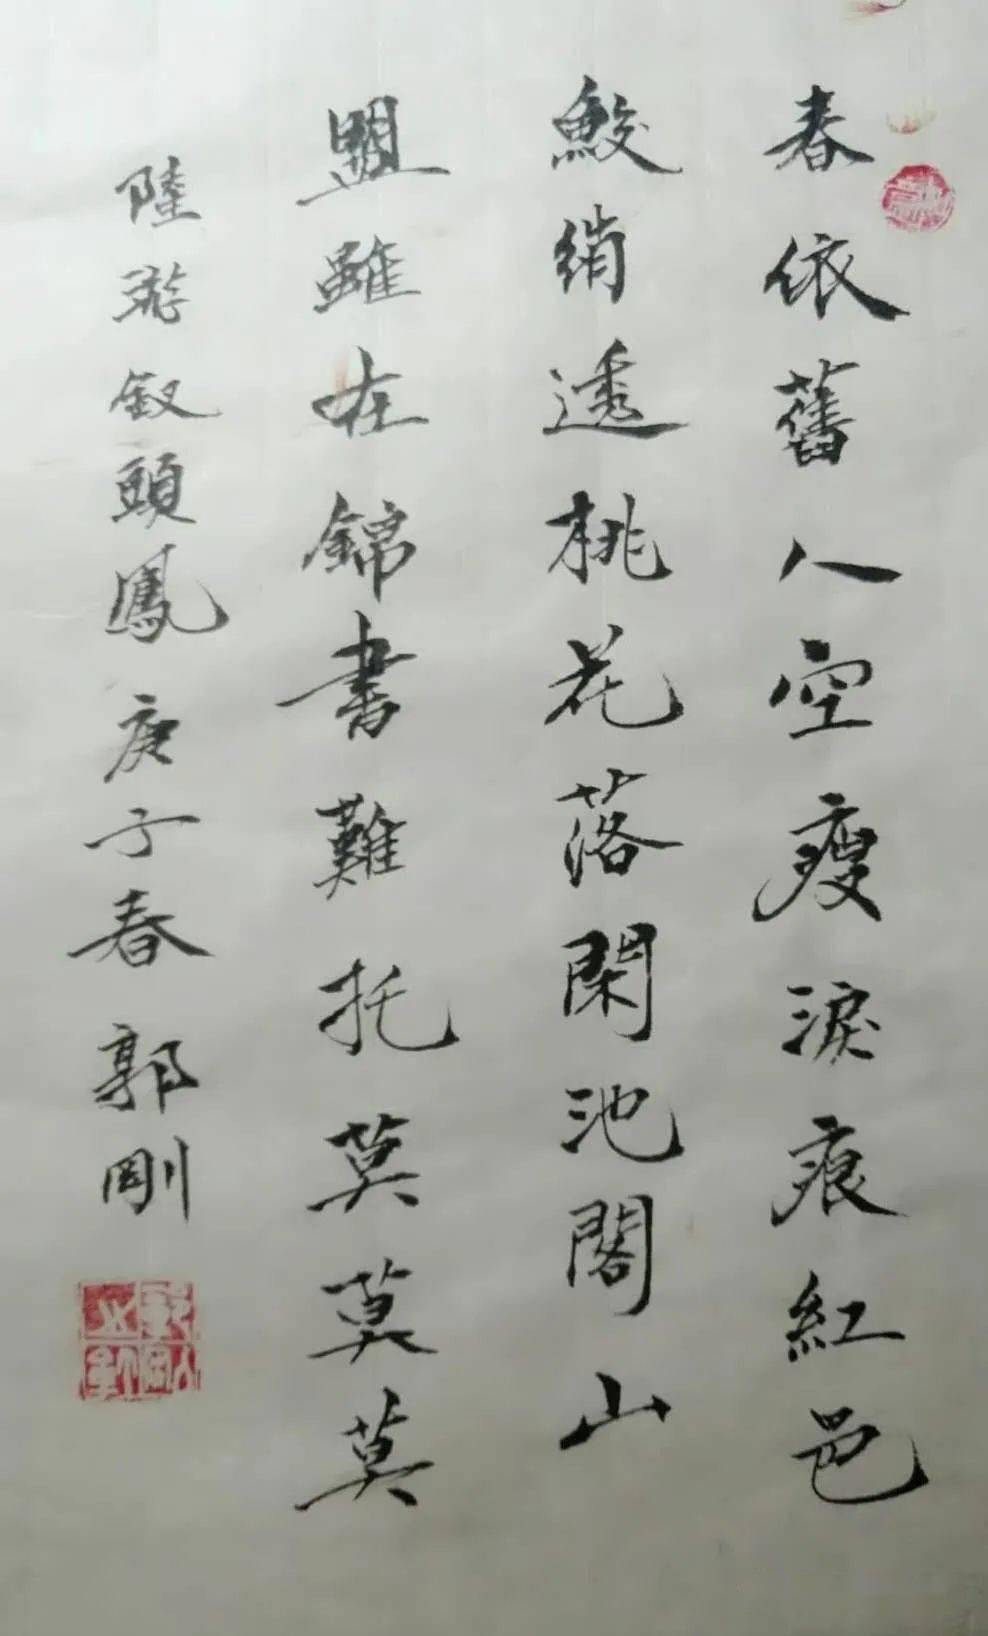 春依舊人空瘦淚痕紅邑
鮫綃透桃花落閑池閣山
盟雖在錦書難托莫莫莫
陸游釵頭鳳庚子春郭剛